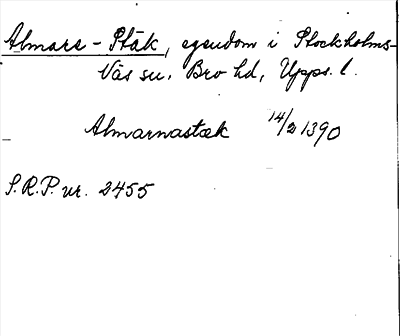 Almare-Stäk, egendom i Stockholms-
Näs sn. Bro hd, Upps. l.
Almarnastæk 14/2 1390
S.R.P. nr. 2455